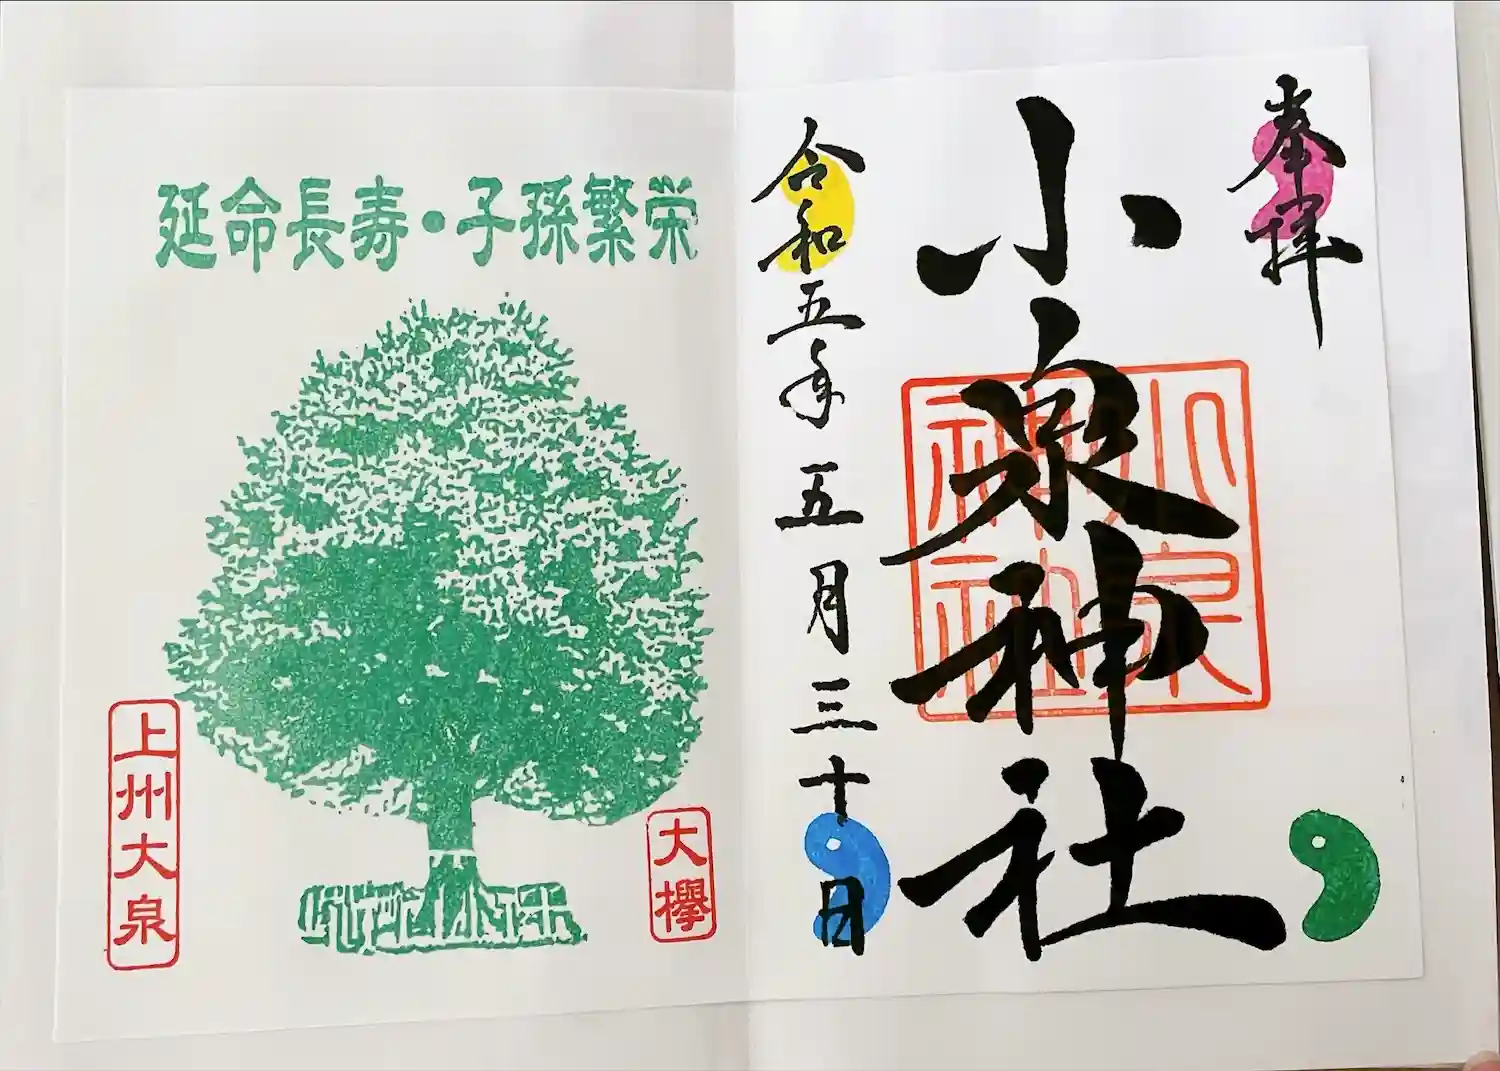 奉拝
小泉神社
小泉
神社
令和五年五月三十日
延命長寿・子孫繁栄
大欅
上州大泉